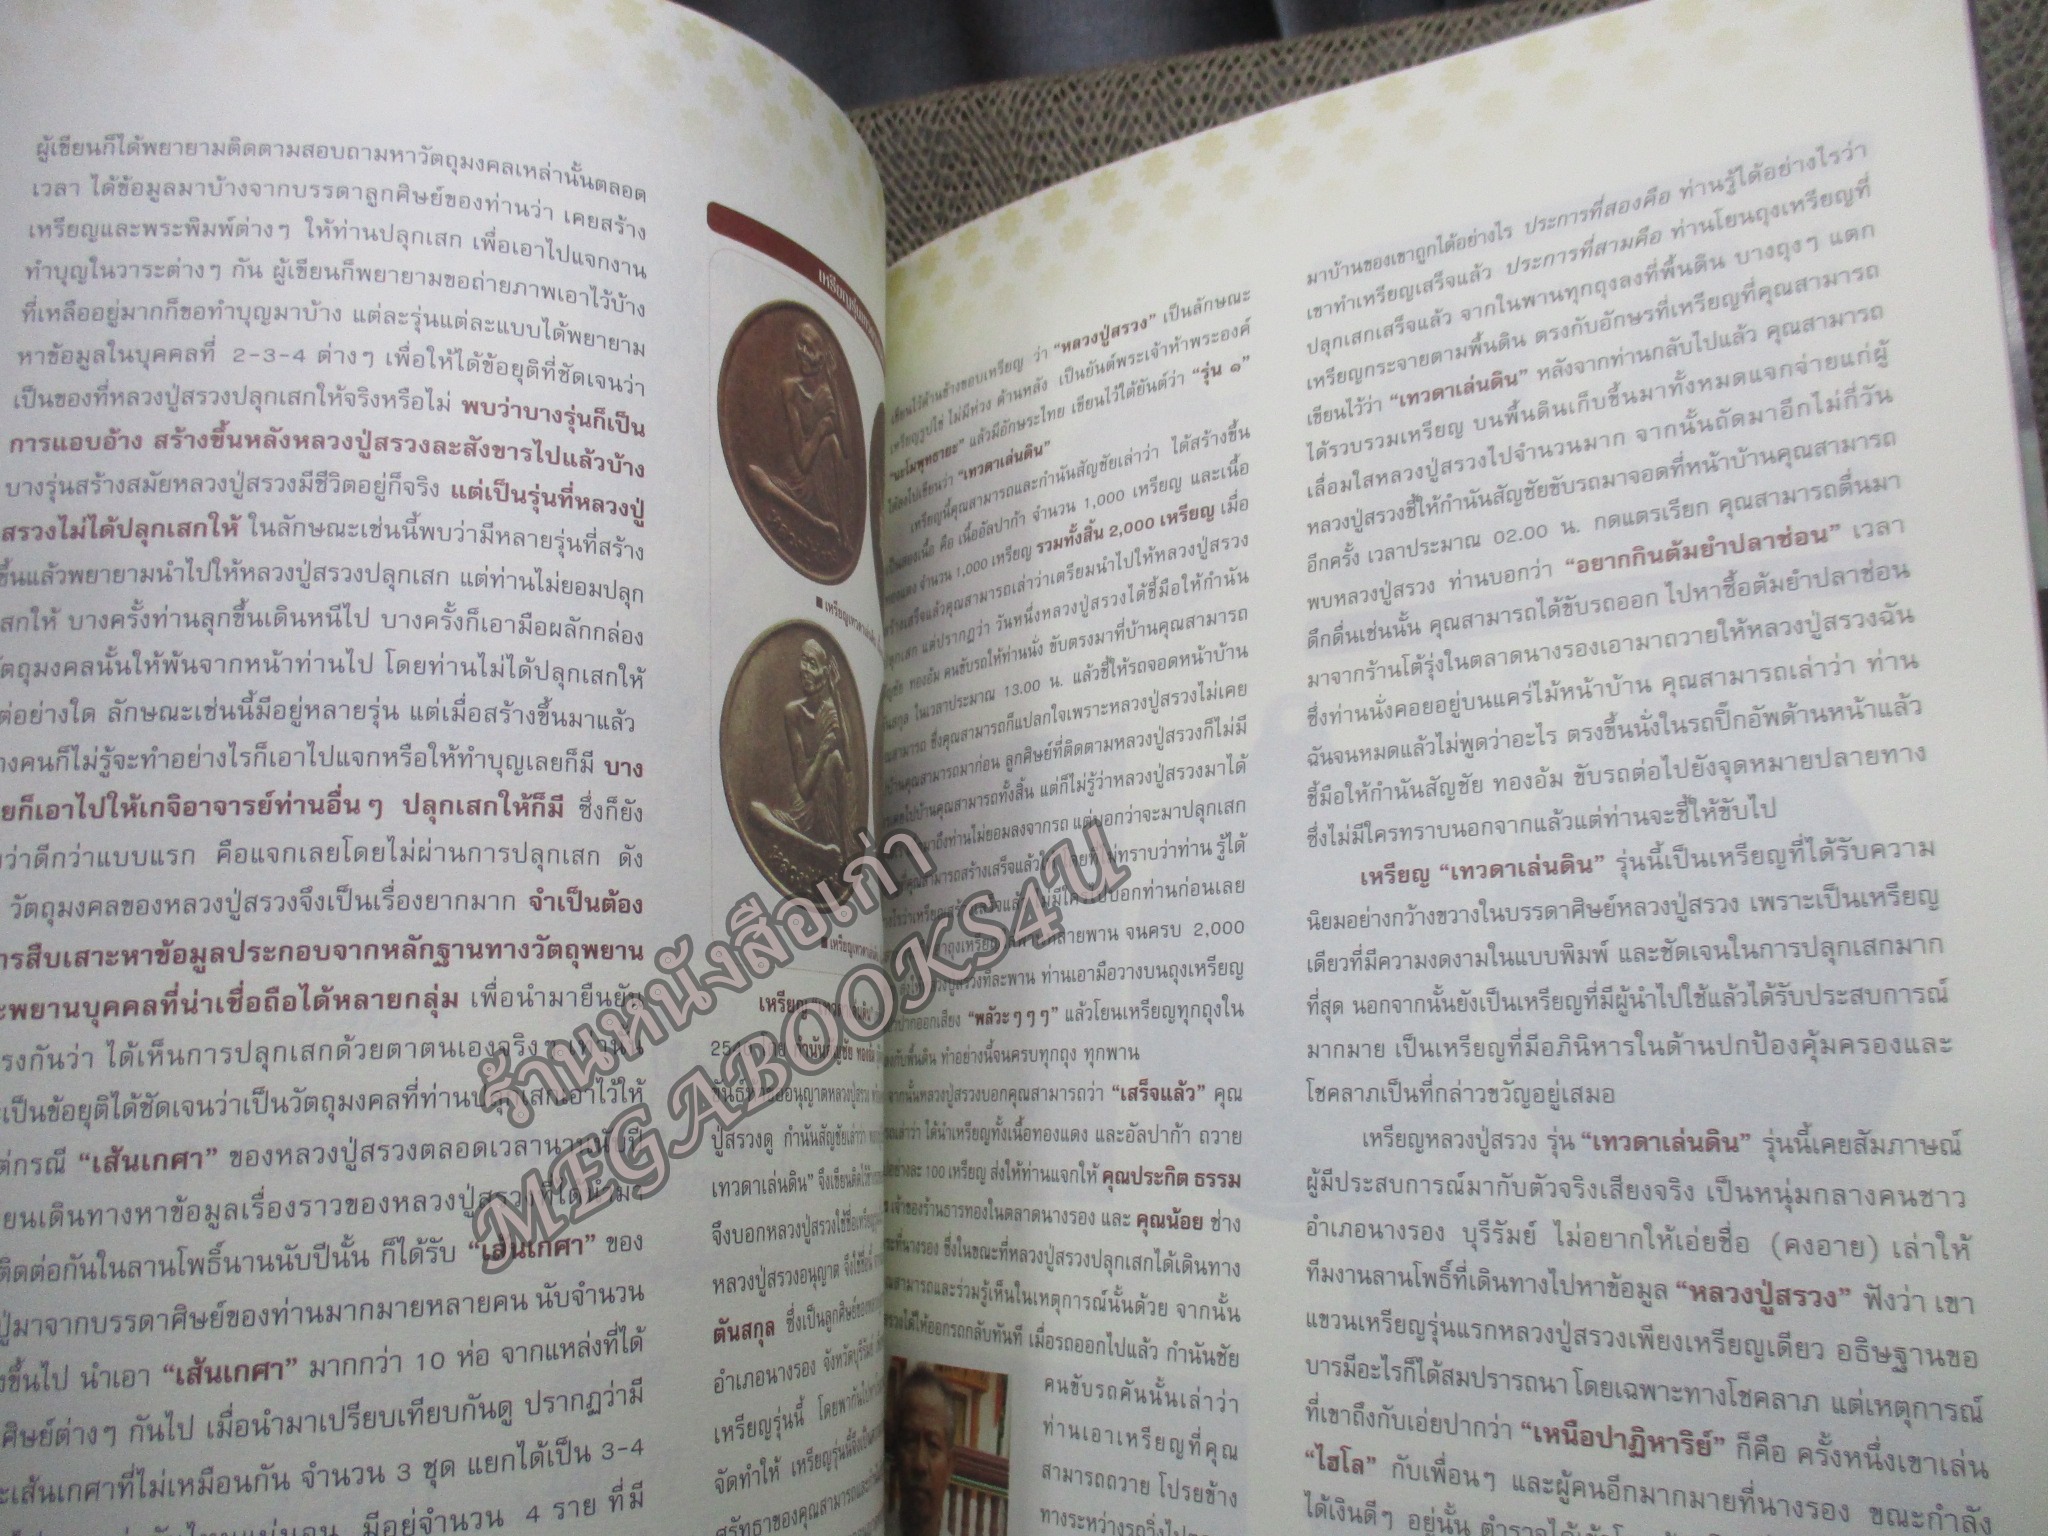 ผู้เขียนก็ได้พยายามติดตามสอบถามหาวัตถุมงคลเหล่านั้นตลอด
เวลา ได้ข้อมูลมาบ้างจากบรรดาลูกศิษย์ของท่านว่า เคยสร้าง
เหรียญและพระพิมพ์ต่างๆ ให้ท่านปลุกเสก เพื่อเอาไปแจกงาน
ทำบุญในวาระต่างๆ กัน ผู้เขียนก็พยายามขอถ่ายภาพเอาไว้บ้าง
ที่เหลืออยู่มากก็ขอทำบุญมาบ้าง แต่ละรุ่นแต่ละแบบได้พยายาม
หาข้อมูลในบุคคลที่ 2-3-4 ต่างๆ เพื่อให้ได้ข้อยุติที่ชัดเจนว่า
เป็นของที่หลวงปู่สรวงปลุกเสกให้จริงหรือไม่ พบว่าบางรุ่นก็เป็น
การแอบอ้าง สร้างขึ้นหลังหลวงปู่สรวงละสังขารไปแล้วบ้าง
บางรุ่นสร้างสมัยหลวงปู่สรวงมีชีวิตอยู่ก็จริง แต่เป็นรุ่นที่หลวงปู่
สรวงไม่ได้ปลุกเสกให้ ในลักษณะเช่นนี้พบว่ามีหลายรุ่นที่สร้าง
ขึ้นแล้วพยายามนำไปให้หลวงปู่สรวงปลุกเสก แต่ท่านไม่ยอมปลุก
เสกให้ บางครั้งท่านลุกขึ้นเดินหนีไป บางครั้งก็เอามือผลักกล่อง
วัตถุมงคลนั้นให้พ้นจากหน้าท่านไป โดยท่านไม่ได้ปลุกเสกให้
ต่อย่างใด ลักษณะเช่นนี้มีอยู่หลายรุ่น แต่เมื่อสร้างขึ้นมาแล้ว
างคนก็ไม่รู้จะทำอย่างไรก็เอาไปแจกหรือให้ทำบุญเลยก็มี บาง
ยก็เอาไปให้เกจิอาจารย์ท่านอื่นๆ ปลุกเสกให้ก็มี ซึ่งก็ยัง
ว่าดีกว่าแบบแรก คือแจกเลยโดยไม่ผ่านการปลุกเสก ดัง
วัตถุมงคลของหลวงปู่สรวงจึงเป็นเรื่องยากมาก จำเป็นต้อง
ารสืบเสาะหาข้อมูลประกอบจากหลักฐานทางวัตถุพยาน
ะพยานบุคคลที่น่าเชื่อถือได้หลายกลุ่ม เพื่อนำมายืนยัน
รงกันว่า ได้เห็นการปลุกเสกด้วยตาตนเองจริงๆ เท่านั้น
เป็นข้อยุติได้ชัดเจนว่าเป็นวัตถุมงคลที่ท่านปลุกเสกเอาไว้ให้
ต่กรณี “เส้นเกศา” ของหลวงปู่สรวงตลอดเวลานานนับปี
ยนเดินทางหาข้อมูลเรื่องราวของหลวงปู่สรวง
ติดต่อกันในลานโพธิ์นานนับปีนั้น ก็ได้รับ “เส้นเกศา” ของ
ปู่มาจากบรรดาศิษย์ของท่านมากมายหลายคน นับจำนวน
ขึ้นไป นำเอา “เส้นเกศา” มากกว่า 10 ห่อ จากแหล่งที่ได้
ศิษย์ต่างๆ กันไป เมื่อนำมาเปรียบเทียบกันดู ปรากฏว่ามี
เส้นเกศาที่ไม่เหมือนกัน จำนวน 3 ชุด แยกได้เป็น 3-4
มีอยู่จำนวน 4 ราย ที่มี
เหรียญ
เหรียญ
กำนันสัญชัย
ขออนุญาตหลวงปู่สรวง
ปู่สรวงดู กำนันสัญชัยเล่าว่า
เทวดาเล่นดิน” จึงเขียน
จึงบอกหลวงปู่สรวงใช้ชื่อเหรียญ
หลวงปู่สรวงอนุญาต จึงใช้ชื่อนี้
ตันสกุล ซึ่งเป็นลูกศิษย์ของ
อำเภอนางรอง จังหวัดบุรีรัมย์
เหรียญรุ่นนี้ โดยพากันไป
จัดทำให้ เหรียญรุ่นนี้จึงเป็น
ศรัทธาของคุณสามารถและ
เขียนไว้ด้านข้างขอบเหรียญ ว่า “หลวงปู่สรวง” เป็นลักษณะ
เหรียญรูปไข่ ไม่มีห่วง ด้านหลัง เป็นยันต์พระเจ้าห้าพระองค์
“นะโมพุทธายะ” แล้วมีอักษระไทย เขียนไว้ใต้ยันต์ว่า “รุ่น ๑”
ใต้ลงไปเขียนว่า “เทวดาเล่นดิน”
เหรียญนี้คุณสามารถและกำนันสัญชัยเล่าว่า ได้สร้างขึ้น
เป็นสองเนื้อ คือ เนื้ออัลปาก้า จำนวน 1,000 เหรียญ และเนื้อ
ทองแดง จำนวน 1,000 เหรียญ รวมทั้งสิ้น 2,000 เหรียญ เมื่อ
สร้างเสร็จแล้วคุณสามารถเล่าว่าเตรียมนำไปให้หลวงปู่สรวง
ปลุกเสก แต่ปรากฏว่า วันหนึ่งหลวงปู่สรวงได้ชี้มือให้กำนัน
สัญชัย ทองอ้ม คนขับรถให้ท่านนั่ง ขับตรงมาที่บ้านคุณสามารถ
ตันสกุล ในเวลาประมาณ 13.00 น. แล้วชี้ให้รถจอดหน้าบ้าน
คุณสามารถ ซึ่งคุณสามารถก็แปลกใจเพราะหลวงปู่สรวงไม่เคย
บ้านคุณสามารถมาก่อน ลูกศิษย์ที่ติดตามหลวงปู่สรวงก็ไม่มี
เคยไปบ้านคุณสามารถทั้งสิ้น แต่ก็ไม่รู้ว่าหลวงปู่สรวงมาได้
มาถึงท่านไม่ยอมลงจากรถ แต่บอกว่าจะมาปลุกเสก
ที่คุณสามารถสร้างเสร็จแล้วให้ โดยที่ไม่ทราบว่าท่าน รู้ได้
ไม่มีใครไปบอกท่านก่อนเลย
จนครบ 2,000
ท่านเอามือวางบนถุงเหรียญ
ปากออกเสียง “พล๊วะๆๆๆ” แล้วโยนเหรียญทุกถุงใน
ลงกับพื้นดิน ทำอย่างนี้จนครบทุกถุง ทุกพาน
จากนั้นหลวงปู่สรวงบอกคุณสามารถว่า “เสร็จแล้ว” คุณ
เล่าว่า ได้นำเหรียญทั้งเนื้อทองแดง และอัลปาก้า ถวาย
อย่างละ 100 เหรียญ ส่งให้ท่านแจกให้ คุณประกิต ธรรม
เจ้าของร้านธารทองในตลาดนางรอง และ คุณน้อย ช่าง
ที่นางรอง ซึ่งในขณะที่หลวงปู่สรวงปลุกเสกได้เดินทาง
คุณสามารถและร่วมรู้เห็นในเหตุการณ์นั้นด้วย จากนั้น
สรวงได้ให้ออกรถกลับทันที เมื่อรถออกไปแล้ว กำนันชัย
คนขับรถคันนั้นเล่าว่า
ท่านเอาเหรียญที่คุณ
สามารถถวาย โปรยข้าง
ทางระหว่างรถวิ่งไป
มาบ้านของเขาถูกได้อย่างไร ประการที่สองคือ ท่านรู้ได้อย่างไรว่า
เขาทำเหรียญเสร็จแล้ว ประการที่สามคือ ท่านโยนถุงเหรียญที่
ปลุกเสกเสร็จแล้ว จากในพานทุกถุงลงที่พื้นดิน บางถุงๆ แตก
เหรียญกระจายตามพื้นดิน ตรงกับอักษรที่เหรียญที่คุณสามารถ
เขียนไว้ว่า “เทวดาเล่นดิน” หลังจากท่านกลับไปแล้ว คุณสามารถ
ได้รวบรวมเหรียญ บนพื้นดินเก็บขึ้นมาทั้งหมดแจกจ่ายแก่ผู้
เลื่อมใสหลวงปู่สรวงไปจำนวนมาก จากนั้นถัดมาอีกไม่กี่วัน
หลวงปู่สรวงชี้ให้กำนันสัญชัยขับรถมาจอดที่หน้าบ้านคุณสามารถ
อีกครั้ง เวลาประมาณ 02.00 น. กดแตรเรียก คุณสามารถตื่นมา
พบหลวงปู่สรวง ท่านบอกว่า “อยากกินต้มยำปลาช่อน” เวลา
ดึกดื่นเช่นนั้น คุณสามารถได้ขับรถออก ไปหาซื้อต้มยำปลาช่อน
มาจากร้านโต้รุ่งในตลาดนางรองเอามาถวายให้หลวงปู่สรวงฉัน
ซึ่งท่านนั่งคอยอยู่บนแคร่ไม้หน้าบ้าน คุณสามารถเล่าว่า ท่าน
ฉันจนหมดแล้วไม่พูดว่าอะไร ตรงขึ้นนั่งในรถปิ๊กอัพด้านหน้าแล้ว
ชี้มือให้กำนันสัญชัย ทองอ้ม ขับรถต่อไปยังจุดหมายปลายทาง
ซึ่งไม่มีใครทราบนอกจากแล้วแต่ท่านจะชี้ให้ขับไป
เหรียญ “เทวดาเล่นดิน” รุ่นนี้เป็นเหรียญที่ได้รับความ
นิยมอย่างกว้างขวางในบรรดาศิษย์หลวงปู่สรวง เพราะเป็นเหรียญ
เดียวที่มีความงดงามในแบบพิมพ์ และชัดเจนในการปลุกเสกมาก
ที่สุด นอกจากนั้นยังเป็นเหรียญที่มีผู้นำไปใช้แล้วได้รับประสบการณ์
มากมาย เป็นเหรียญที่มีอภินิหารในด้านปกป้องคุ้มครองและ
โชคลาภเป็นที่กล่าวขวัญอยู่เสมอ
เหรียญหลวงปู่สรวง รุ่น “เทวดาเล่นดิน” รุ่นนี้เคยสัมภาษณ์
ผู้มีประสบการณ์มากับตัวจริงเสียงจริง เป็นหนุ่มกลางคนชาว
อำเภอนางรอง บุรีรัมย์ ไม่อยากให้เอ่ยชื่อ (คงอาย) เล่าให้
ทีมงานลานโพธิ์ที่เดินทางไปหาข้อมูล “หลวงปู่สรวง” ฟังว่า เขา
แขวนเหรียญรุ่นแรกหลวงปู่สรวงเพียงเหรียญเดียว อธิษฐานขอ
บารมีอะไรก็ได้สมปรารถนา โดยเฉพาะทางโชคลาภ แต่เหตุการณ์
ที่เขาถึงกับเอ่ยปากว่า “เหนือปาฏิหาริย์” ก็คือ ครั้งหนึ่งเขาเล่น
“ไฮโล” กับเพื่อนๆ และผู้คนอีกมากมายที่นางรอง ขณะกำลัง
ได้เงินดีๆ อยู่นั้น
ร้านหนังสือเก่า
MEGABOOKS4U